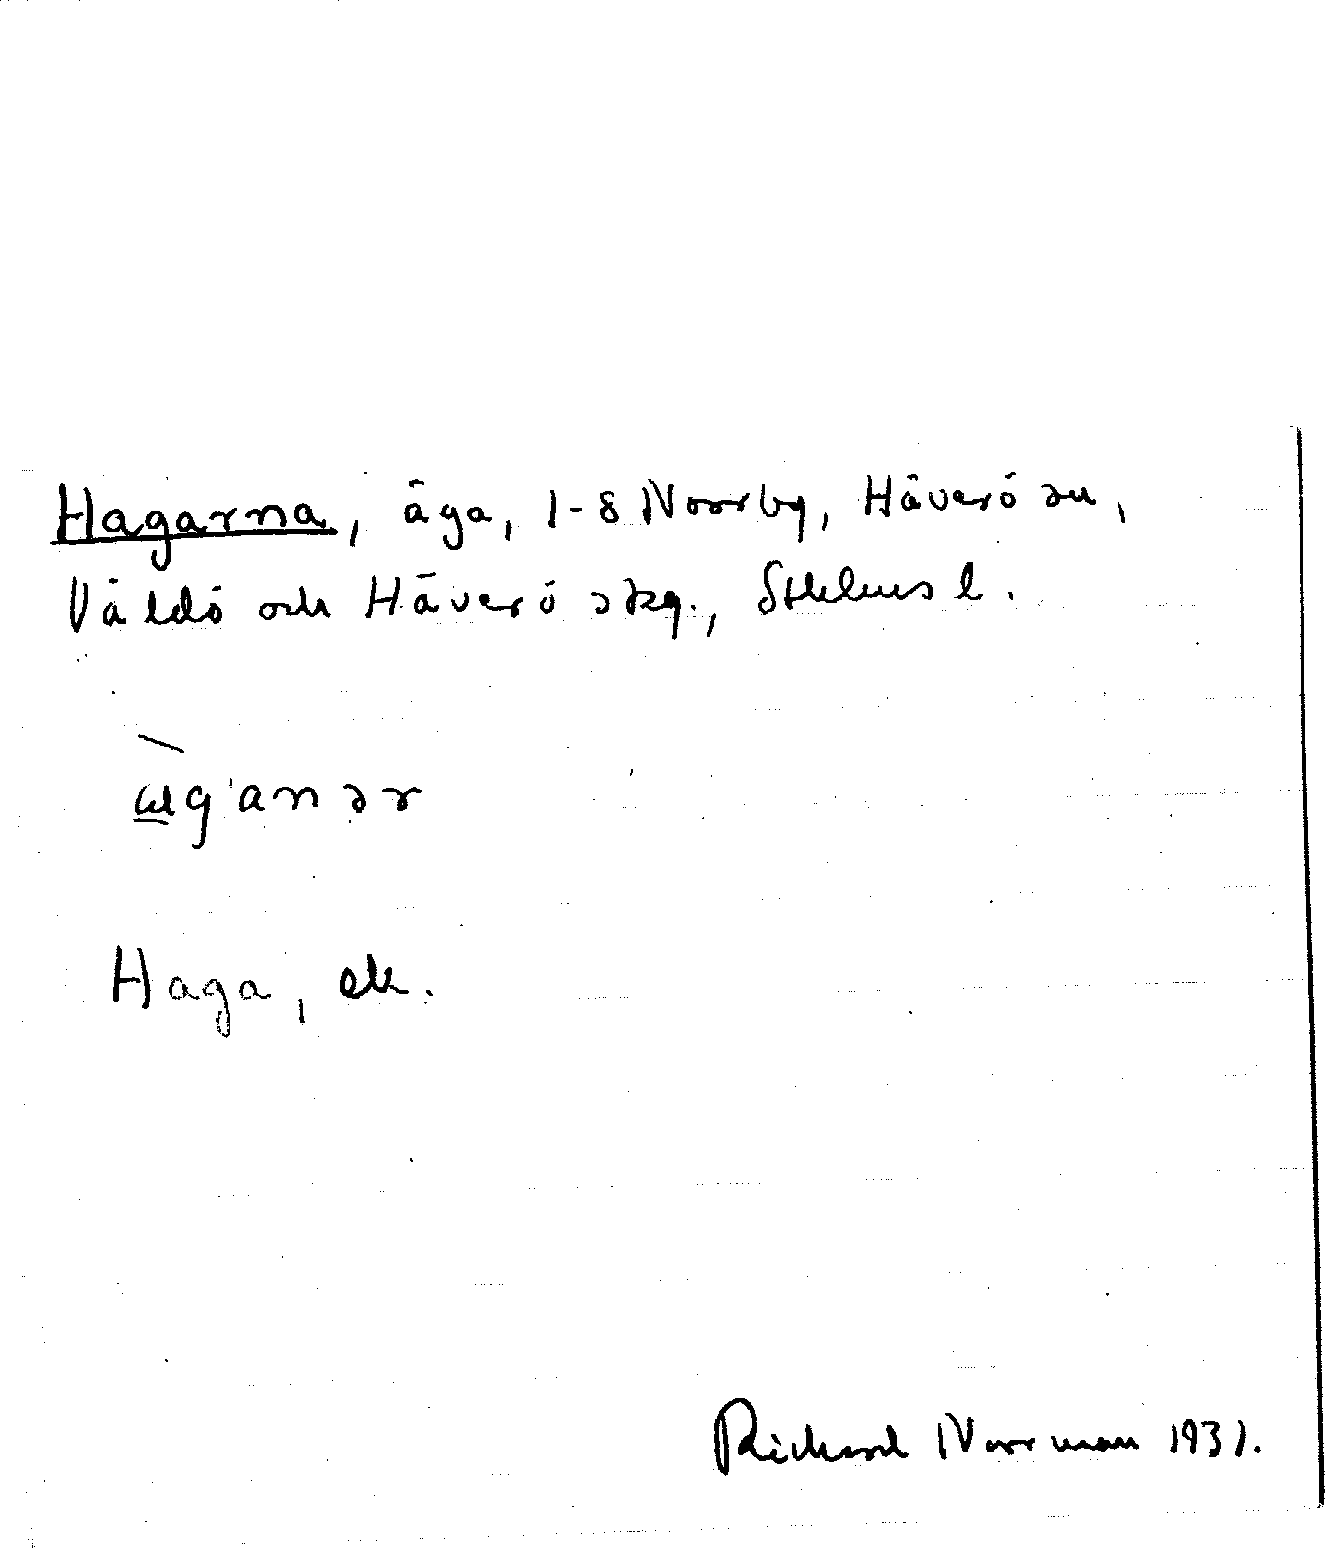 Hagarna, äga, 1-8 Norrby, Häverö sn,
Väddö och Häverö skg., Sthlms l.
Haga, ek.
Rickard Norrman 1931.